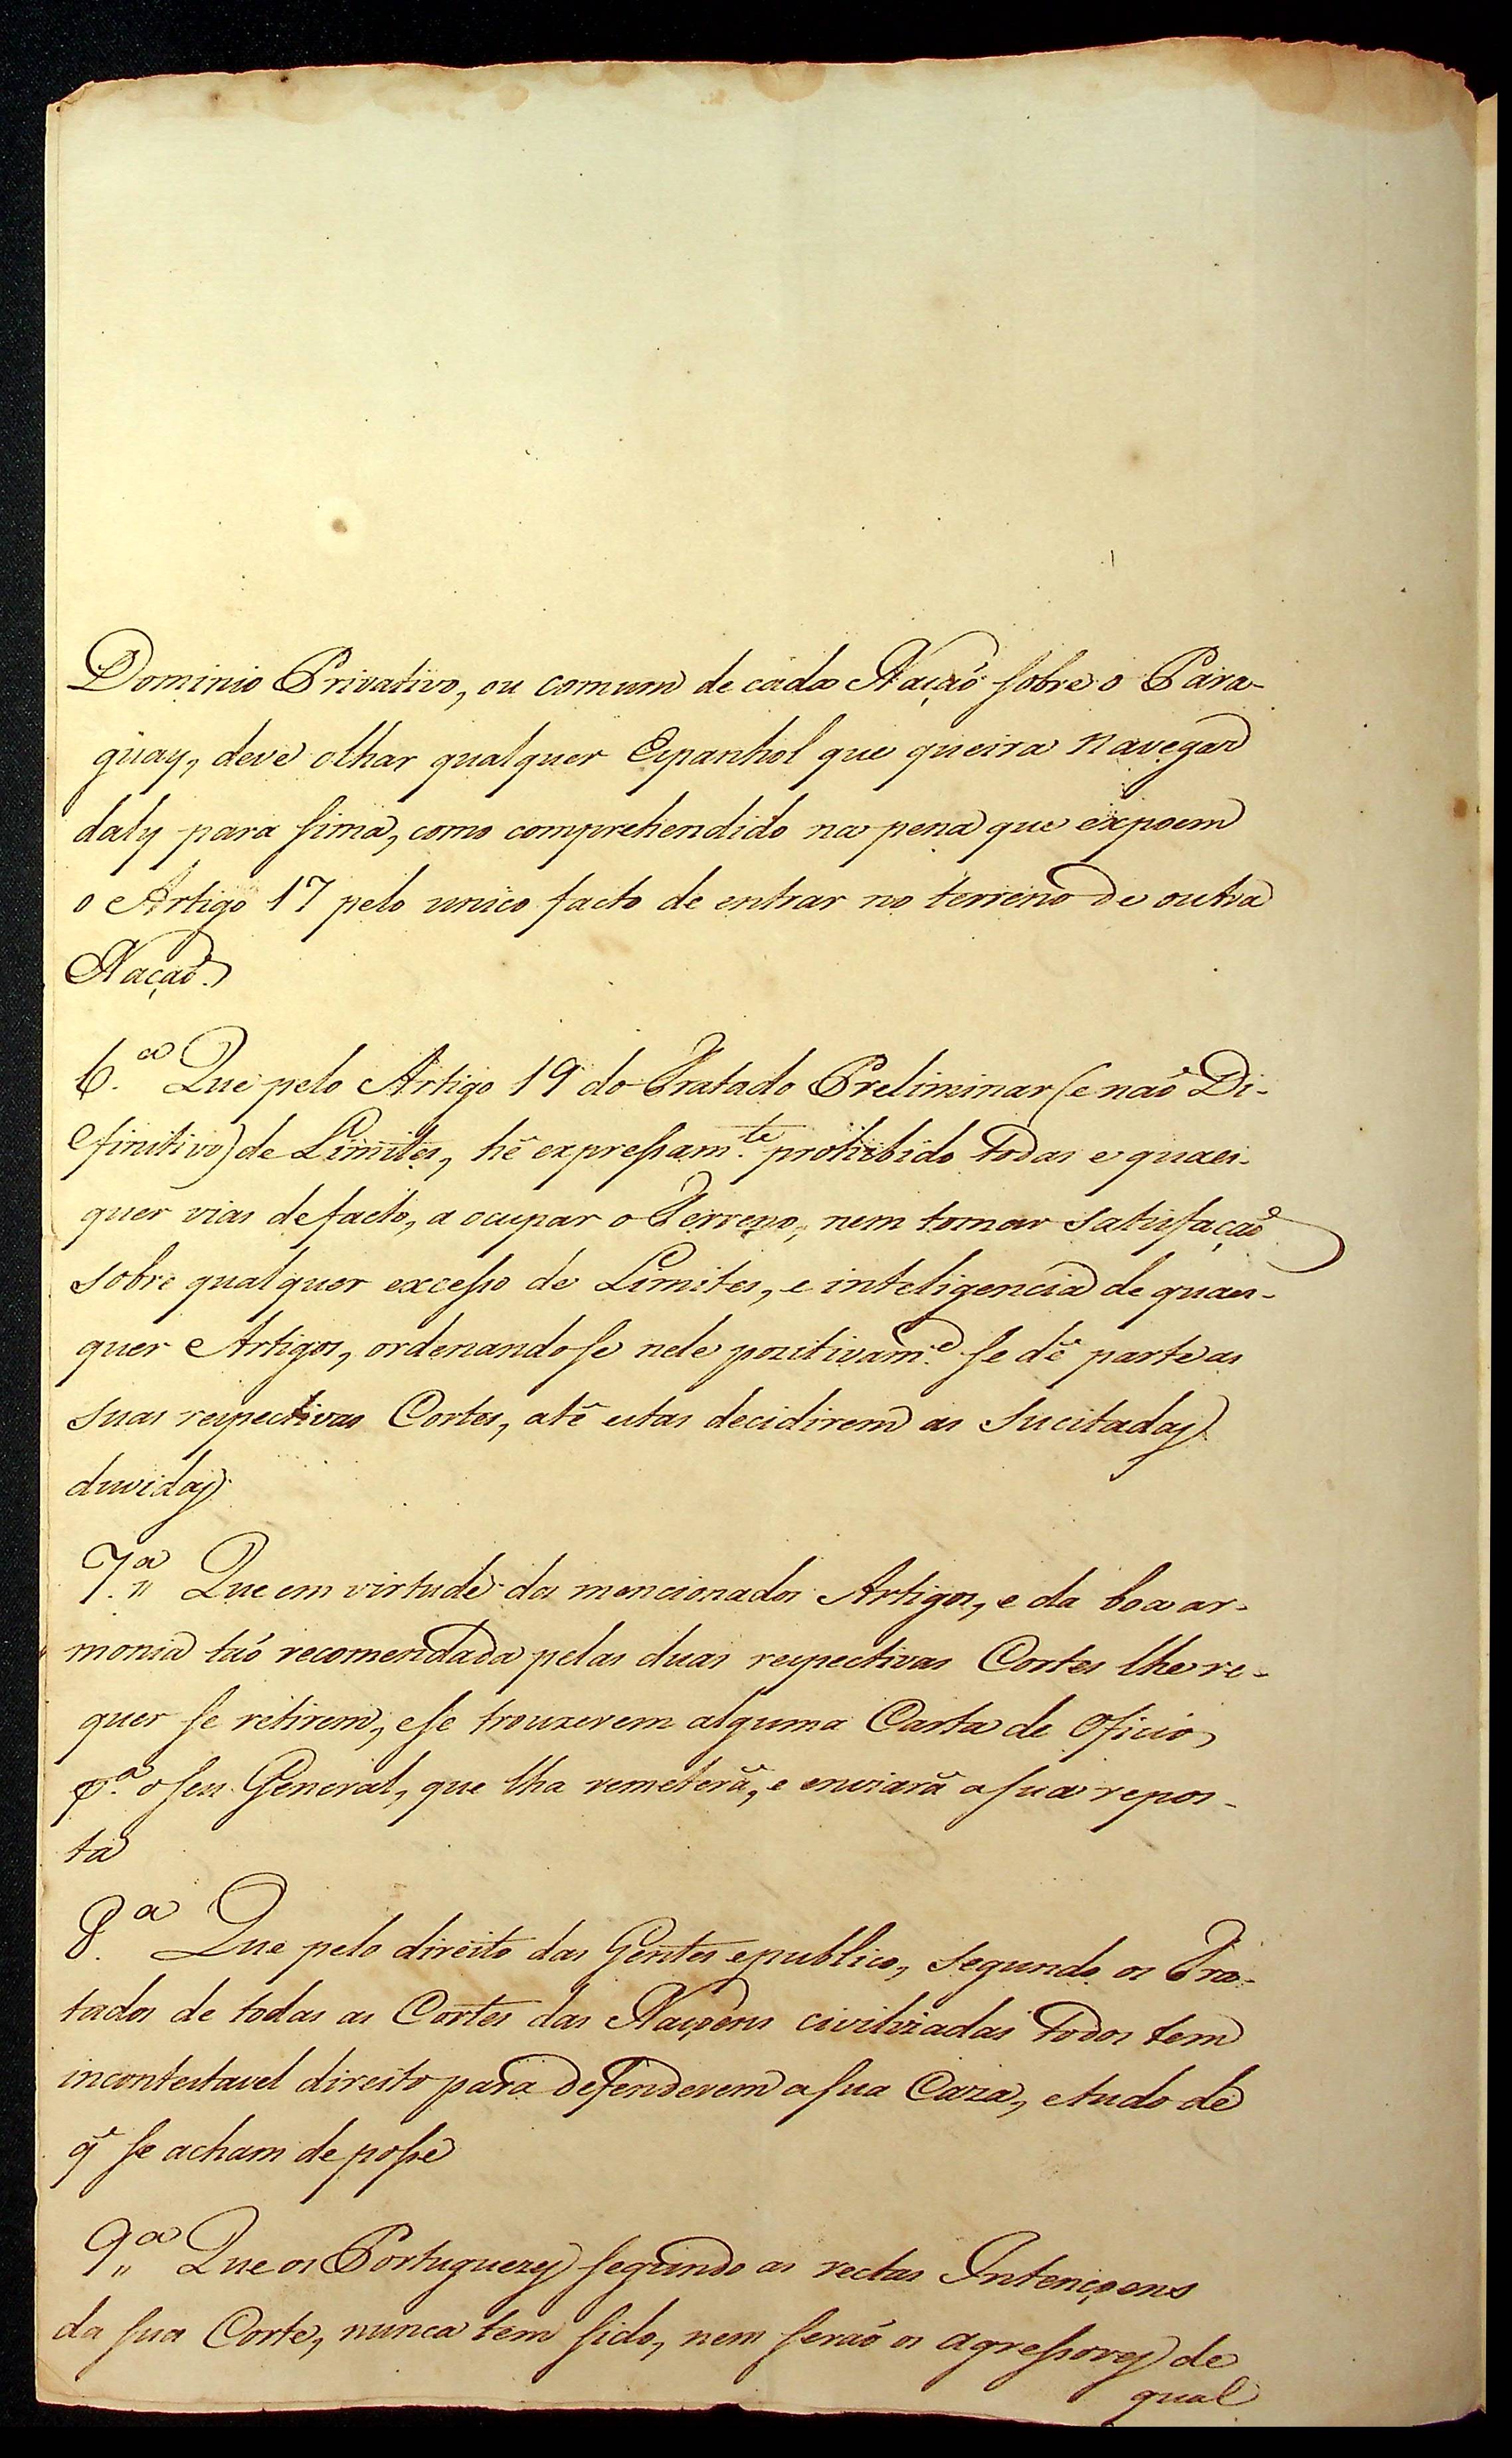 Dominio Privativo, ou comum de cada Nação sobre o Para-
guay, deve olhar qualquer Espanhol que queira navegar
daly para sima, como comprehendido na pena que expoem
o Artigo 17 pelo unico facto de entrar no terreno de outra
Nação.
6.ª Que pelo Artigo 19 do Tratado Preliminar (e naõ Di-
finitivo) de Limites, hê expressam.te prohibido todas e quaes-
quer vias de facto, a ocupar o Terreno, nem tomar satisfaçaõ
sobre qualquer excesso de Limites, e inteligencia de quaes-
quer Artigos, ordenandose nele pozitivam.e se dê parte as
suas respectivas Cortes, atê estas decidirem as sucitadas
duvidas.
7.ª Que em virtude dos mencionados Artigos, e da boa ar-
monia taõ recomendada pelas duas respectivas Cortes lhe re-
quer se retirem, e se trouxerem alguma Carta de Oficio,
p.ª o seu General, que lha remeterâ, e enviarâ a sua repos-
ta
8.ª Que pelo direito das Gentes e publico, segundo os Tra-
tados de todas as Cortes das Naçoens civilizadas todos tem
incontestavel direito para defenderem a sua Caza, e tudo de
q̃ se acham de posse
9.ª Que os Portuguezes segundo as rectas Intençoens
da sua Corte, nunca tem sido, nem seraõ os agressores de
qual